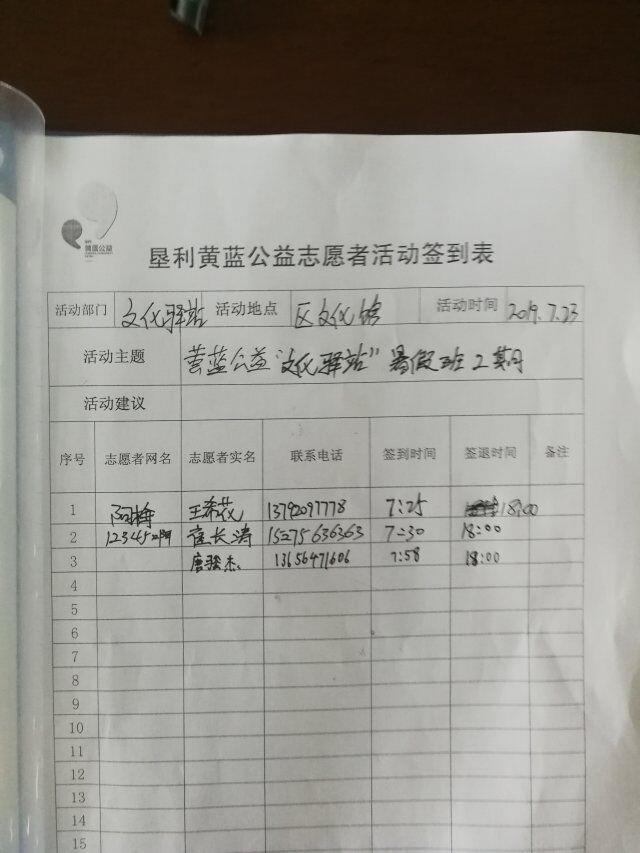 黄蓝公益
垦利黄蓝公益志愿者活动签到表
活动部门 文化驿站 活动地点 区文化馆 活动时间 2019.7.23
活动主题 黄蓝公益“文化驿站”暑假班2期
活动建议
序号 志愿者网名 志愿者实名 联系电话 签到时间 签退时间 备注
1 阿梅 王希花 13792097778 7:25 18:00
2 12345 崔长涛 15275636363 7:30 18:00
3 唐骏杰 13656471606 7:58 18:00
4
5
6
7
8
9
10
11
12
13
14
15